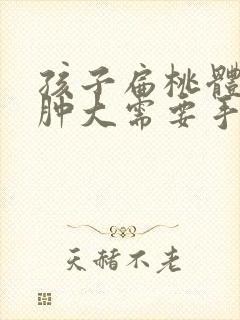 孩子扁桃體
肿大需要手
天赭不老